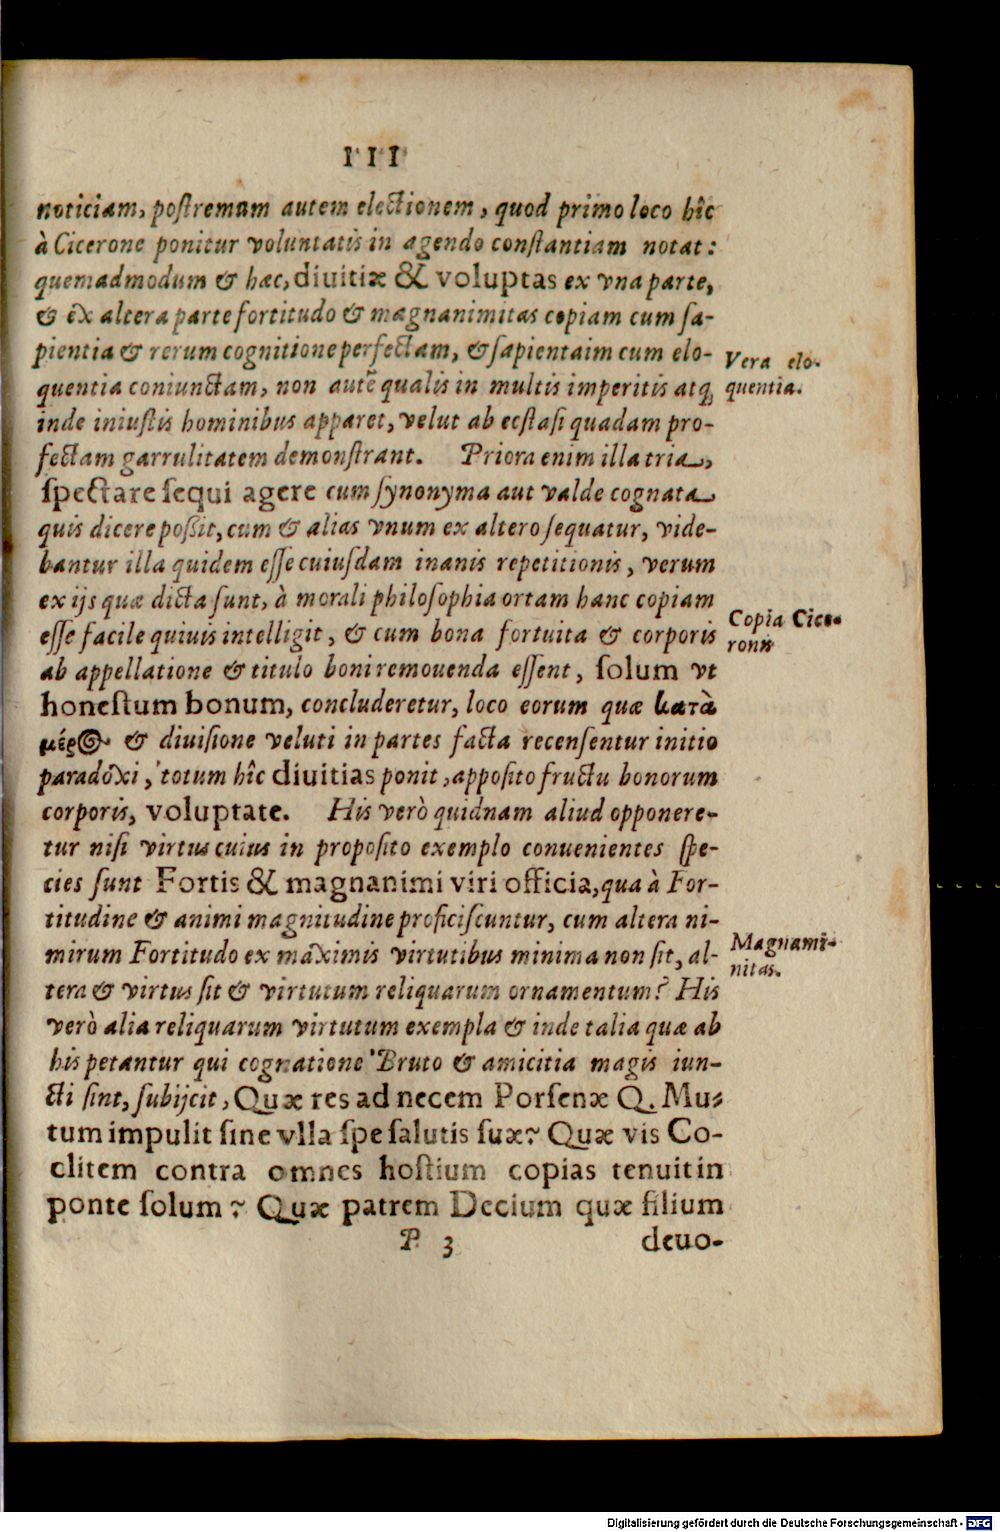 111
noticiam, poſtremum autem electionem, quod primo loco hîc
à Cicerone ponitur voluntatis in agendo conſtantiam notat:
quemadmodum & hæc, diuitiæ & voluptas ex vna parte,
& ex altera parte fortitudo & magnanimitas copiam cum ſa-
pientia & rerum cognitione perfectam, & ſapientaim cum elo-
quentia coniunctam, non autē qualis in multis imperitis atq;
inde iniuſtis hominibus apparet, velut ab ecſtaſi quadam pro-
fectam garrulitatem demonſtrant. Priora enim illa tria,
ſpectare ſequi agere cum ſynonyma aut valde cognata
quis dicere poßit, cum & alias vnum ex altero ſequatur, vide-
bantur illa quidem eſſe cuiuſdam inanis repetitionis, verum
ex ijs quæ dicta ſunt, à morali philoſophia ortam hanc copiam
eſſe facile quiuis intelligit, & cum bona fortuita & corporis
ab appellatione & titulo boni remouenda eſſent, ſolum vt
honeſtum bonum, concluderetur, loco eorum quæ κατὰ
μέρος & diuiſione veluti in partes facta recenſentur initio
paradoxi, totum hîc diuitias ponit, appoſito fructu bonorum
corporis, voluptate. His verò quidnam aliud opponere-
tur niſi virtus cuius in propoſito exemplo conuenientes ſpe-
cies ſunt Fortis & magnanimi viri officia, qua à For-
titudine & animi magnitudine proficiſcuntur, cum altera ni-
mirum Fortitudo ex maximis virtutibus minima non ſit, al-
tera & virtus ſit & virtutum reliquarum ornamentum? His
verò alia reliquarum virtutum exempla & inde talia quæ ab
his petantur qui cognatione Bruto & amicitia magis iun-
cti ſint, ſubijcit, Quæ res ad necem Porſenæ Q. Mu-
tum impulit ſine vlla ſpe ſalutis ſuæ? Quæ vis Co-
clitem contra omnes hoſtium copias tenuit in
ponte ſolum? Quæ patrem Decium quæ filium
P 3 deuo-
Vera elo-
quentia.
Copia Cice-
ronis
Magnami-
nitas.
Digitalisierung gefördert durch die Deutsche Forschungsgemeinschaft - DFG